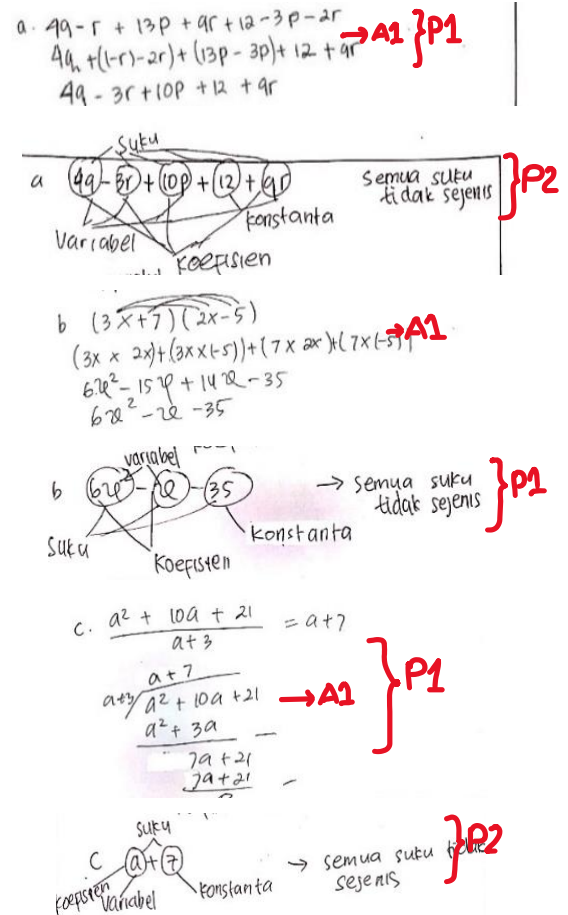 a. 4q - r + 13p + qr + 12 - 3p - 2r
→A1 } P1
4q + ((-r) - 2r) + (13p - 3p) + 12 + qr
4q - 3r + 10p + 12 + qr
suku
a 4q - 3r + 10p + 12 + qr
semua suku
tidak sejenis
} P2
Variabel
konstanta
koefisien
b (3x + 7)(2x - 5)
(3x × 2x) + (3x × (-5)) + (7 × 2x) + (7 × (-5))
→A1
6x² - 15x + 14x - 35
6x² - x - 35
variabel
b 6x² - x - 35
→ semua suku
tidak sejenis
} P1
suku
koefisien
konstanta
c. a² + 10a + 21 = a + 7
a + 3
a + 7
a+3 a² + 10a + 21
→A1 } P1
a² + 3a -
7a + 21
7a + 21 -
suku
c a + 7
→ semua suku tidak
sejenis
} P2
koefisien
variabel
konstanta